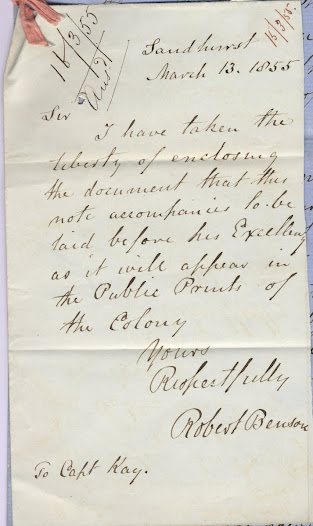 16/3/55
Ansd
15/3/55.
Sandhurst
March 13. 1855
Sir
I have taken the
liberty of enclosing
the document that this
note accompanies to be
laid before his Excellency
as it will appear in
the Public Prints of
the Colony
Yours
Respectfully
Robert Benson
To Capt Kay.